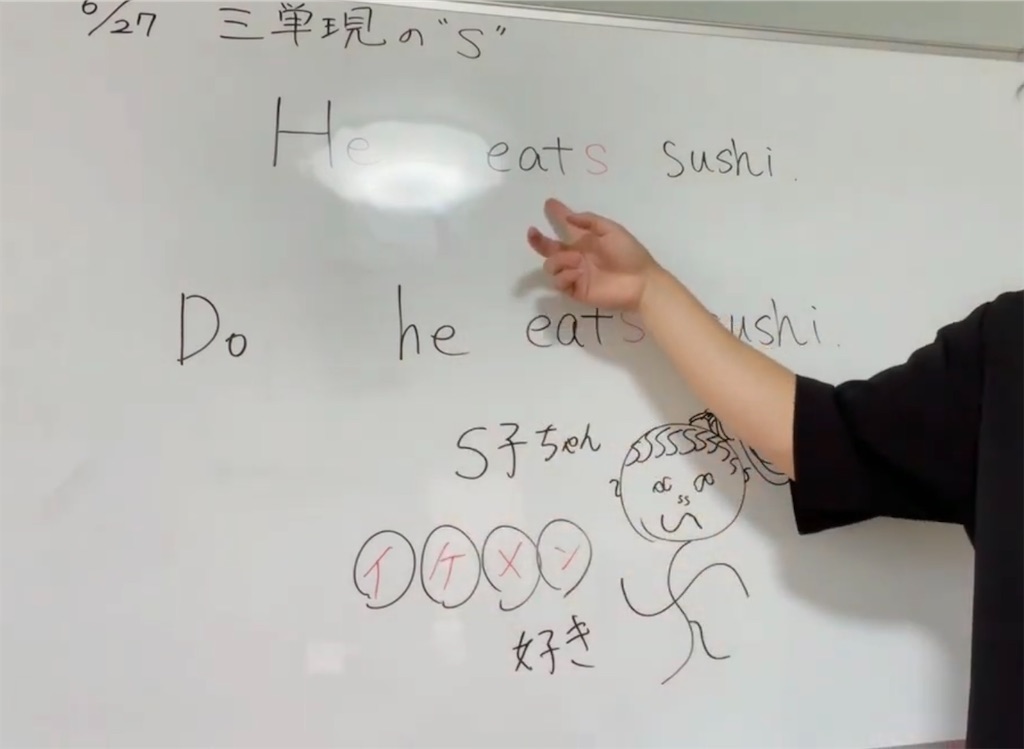 6/27 三単現の"S"
He eats sushi.
Do he eats sushi.
S子ちゃん
イケメン
好き